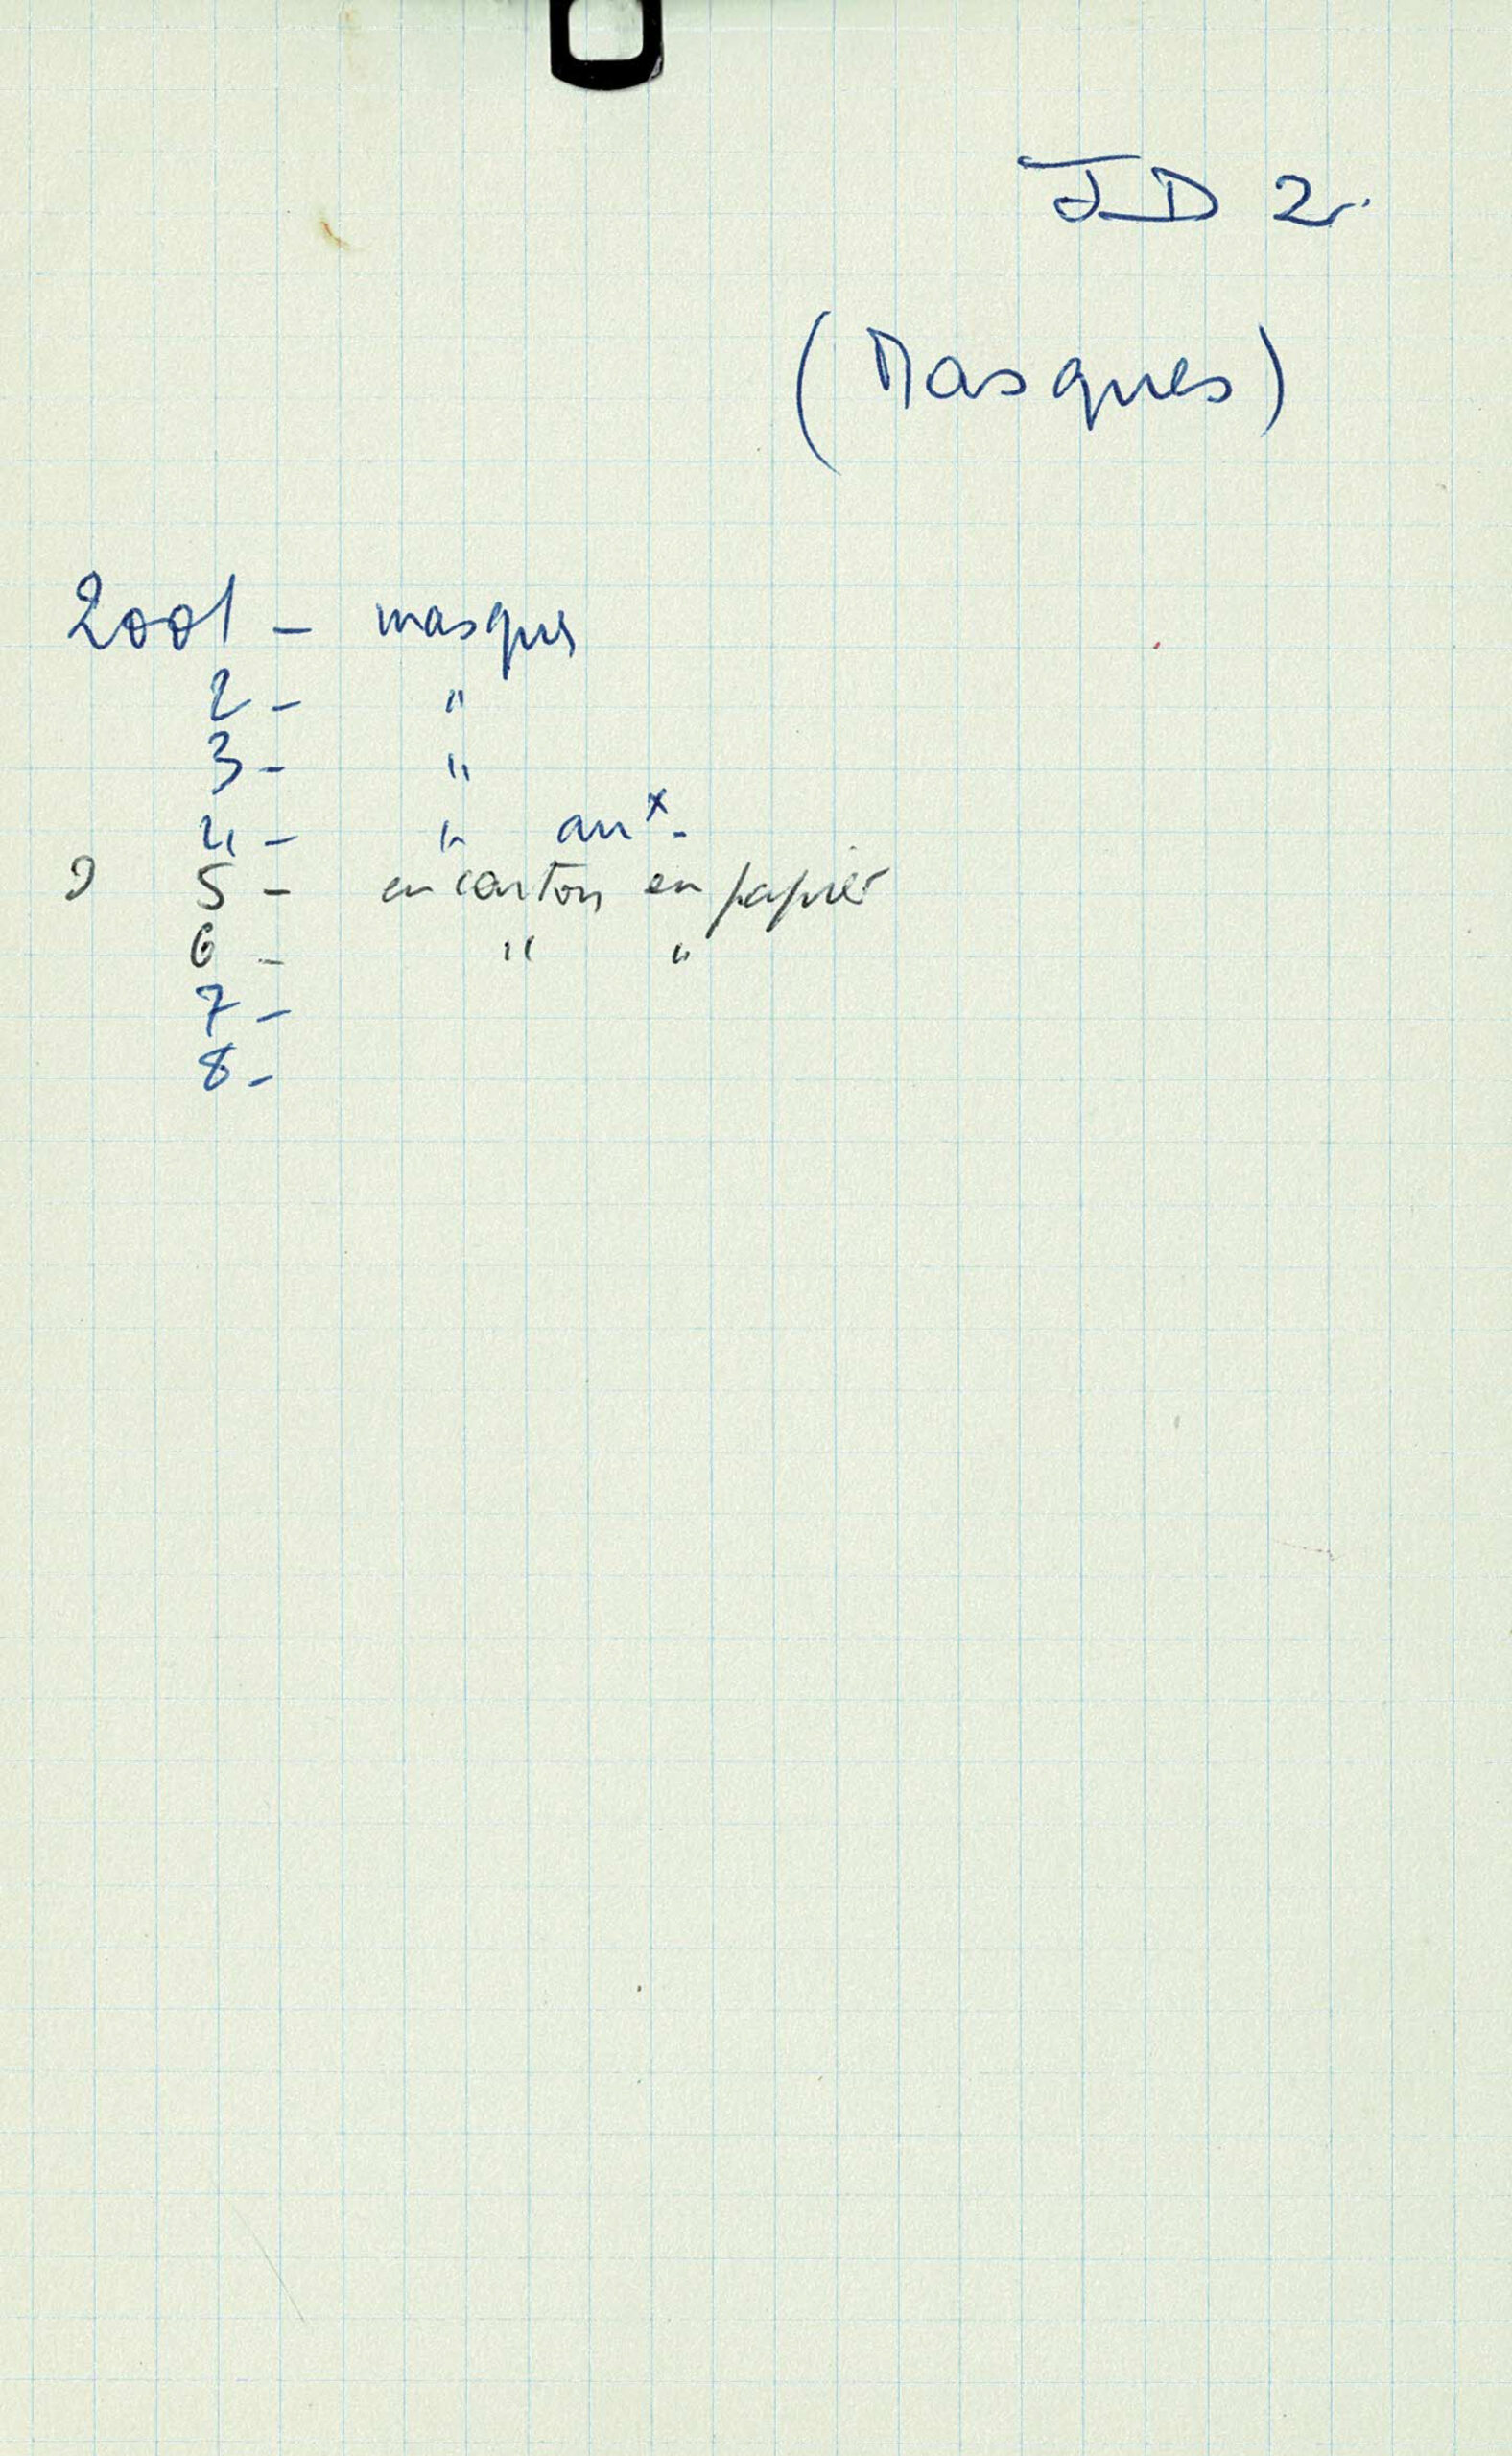 JD 2
(Masques)
2001 - masques
2 - "
3 - "
4 - " anx -
5 - en carton en papier
6 - " "
7 -
8 -